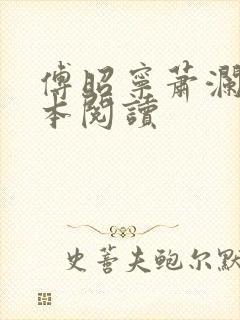 傅昭寧蕭瀾
本閱讀
史蒂夫鮑尔默